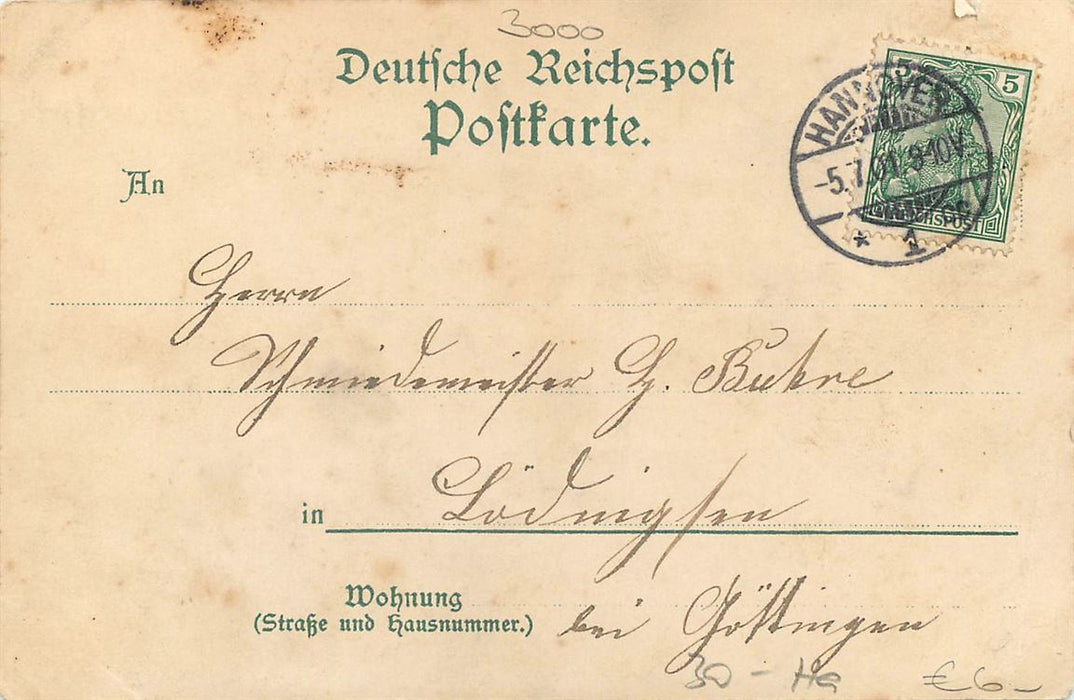 3000
Deutsche Reichspost
Postkarte.
5
HANNOVER
-5.7.01. 9-10V.
REICHSPOST
* 1
An
Herrn
Schmiedemeister H. Buhre
in Lödingsen
Wohnung
(Straße und Hausnummer.)
bei Göttingen
30 - Ha
€ 6-